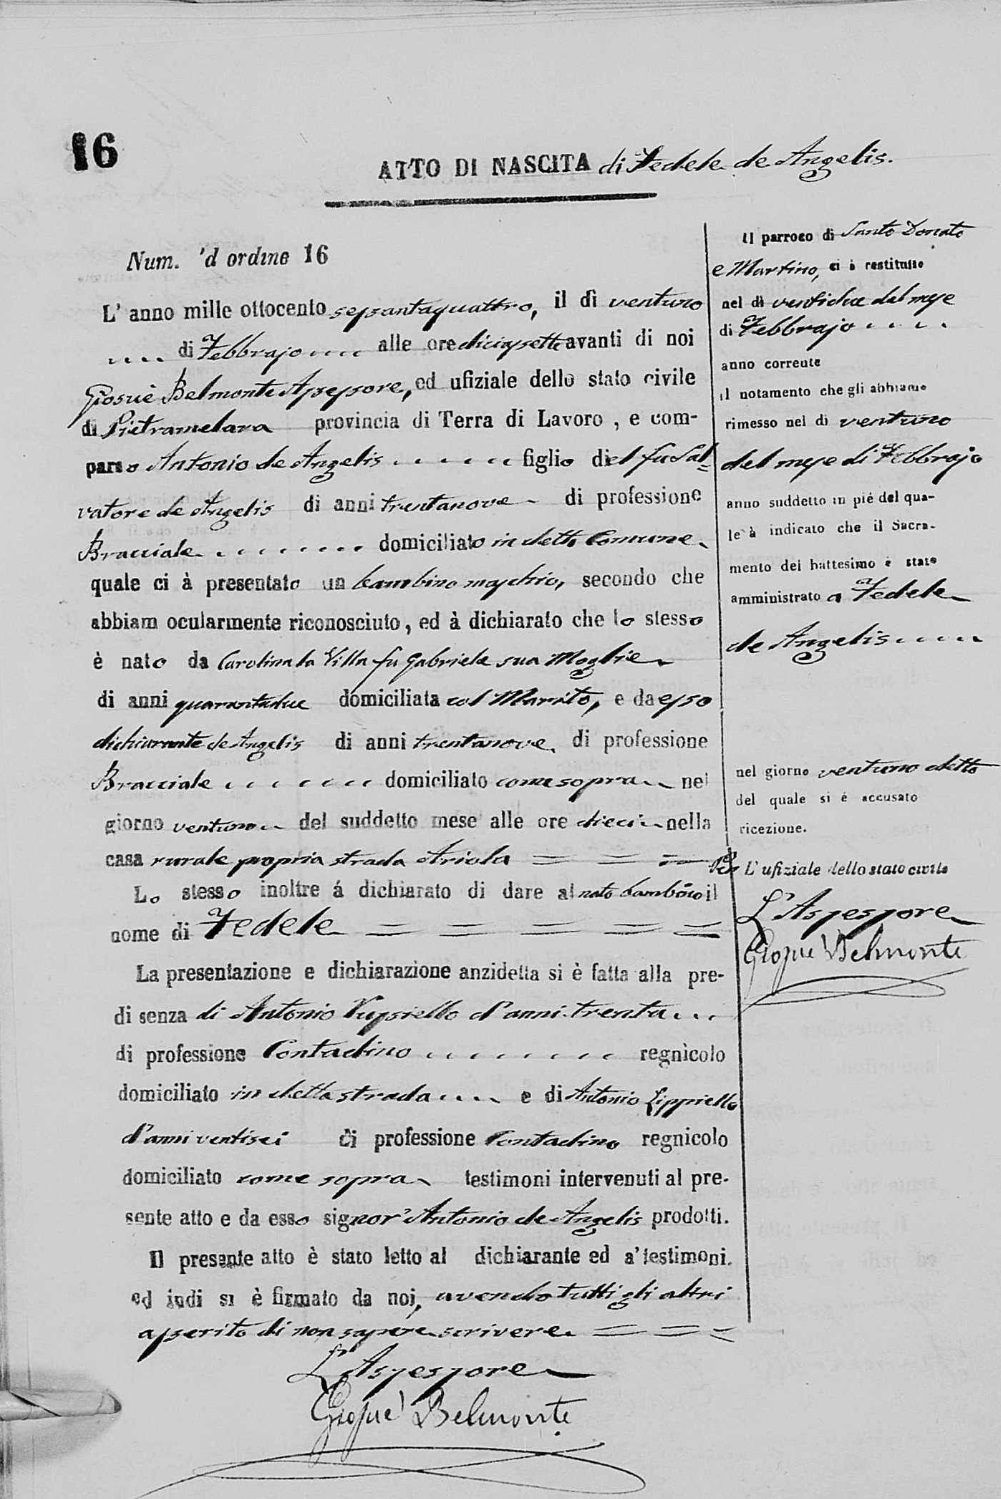 16
ATTO DI NASCITA di Fedele de Angelis.
Num. 'd ordine 16
L' anno mille ottocento sessantaquattro, il dì ventuno
di Febbrajo alle ore diciassette avanti di noi
Giosuè Belmonte Assessore, ed ufiziale dello stato civile
di Pietramelara provincia di Terra di Lavoro, e com-
parso Antonio de Angelis figlio del fu Sal-
vatore de Angelis di anni trentanove di professione
Bracciale domiciliato in detto Comune
quale ci à presentato un bambino maschio, secondo che
abbiam ocularmente riconosciuto, ed à dichiarato che lo stesso
è nato da Carolina la Villa fu Gabriele sua Moglie
di anni quarantadue domiciliata col Marito, e da esso
dichiarante de Angelis di anni trentanove, di professione
Bracciale domiciliato come sopra nel
giorno ventuno del suddetto mese alle ore dieci nella
casa rurale propria strada Ariola
Lo stesso inoltre á dichiarato di dare al nato bambino il
nome di Fedele
La presentazione e dichiarazione anzidetta si è fatta alla pre-
di senza di Antonio d'anni trenta
di professione Contadino regnicolo
domiciliato in detta strada e di Antonio Zippiello
d'anni ventisei di professione Contadino regnicolo
domiciliato come sopra testimoni intervenuti al pre-
sente atto e da esso signor' Antonio de Angelis prodotti.
Il presente atto è stato letto al dichiarante ed a' testimoni.
ed indi si è firmato da noi, avendo tutti gli altri
asserito di non sapere scrivere
L'Assessore
Giosuè Belmonte
Il parroco di Santo Donato
e Martino, ci à restituito
nel dì ventidue del mese
di Febbrajo
anno corrente
il notamento che gli abbiamo
rimesso nel dì ventuno
del mese di Febbrajo
anno suddetto in pié del qua-
le à indicato che il Sacra-
mento dei battesimo è stato
amministrato a Fedele
de Angelis
nel giorno ventuno detto
del quale si é accusato
ricezione.
Per L' ufiziale dello stato civile
L'Assessore
Giosuè Belmonte